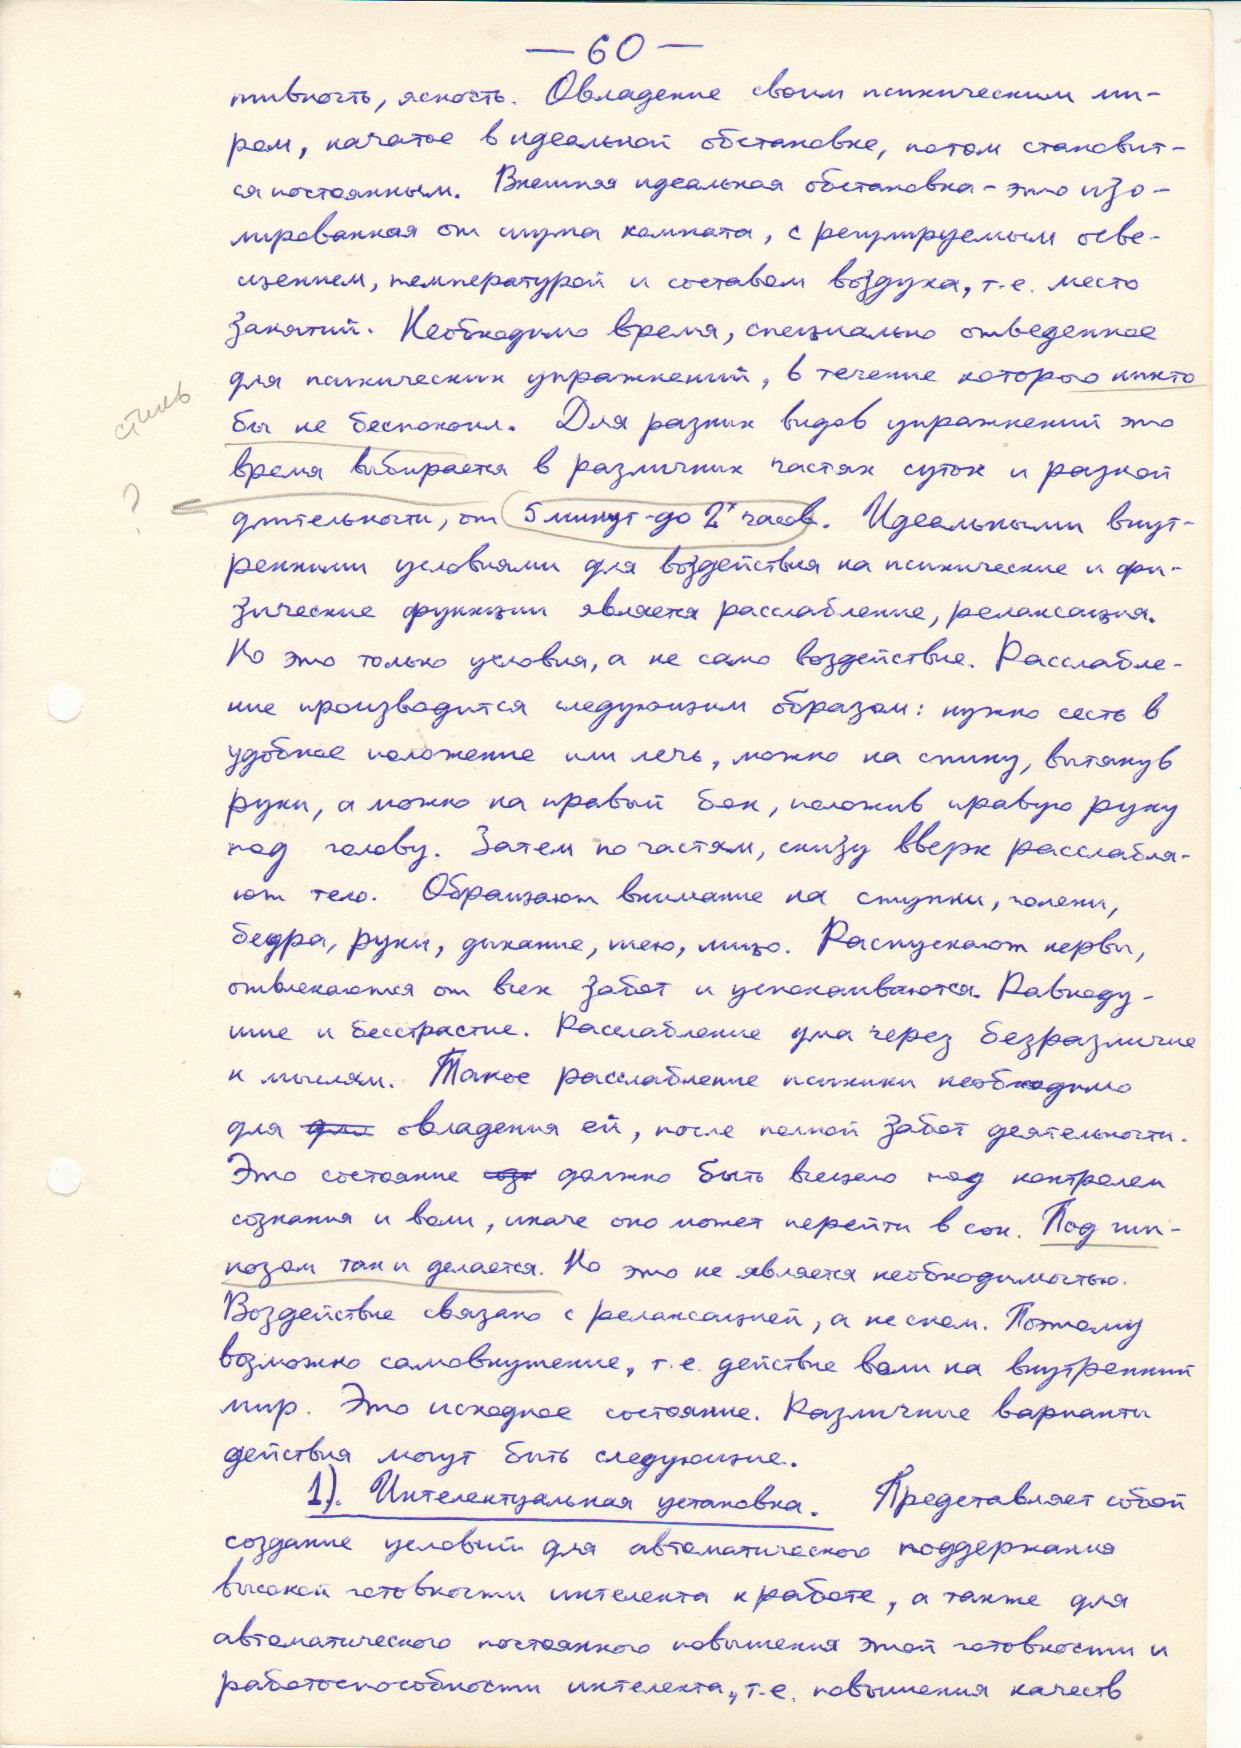 — 60 —
тивность, ясность. Овладение своим психическим ми-
ром, начатое в идеальной обстановке, потом становит-
ся постоянным. Внешняя идеальная обстановка - это изо-
лированная от шума комната, с регулируемым осве-
щением, температурой и составом воздуха, т.е. место
занятий. Необходимо время, специально отведенное
для психических упражнений, в течение которого никто
стиль
бы не беспокоил. Для разных видов упражнений это
время выбирается в различных частях суток и разной
?
длительности, от 5 минут - до 2х часов. Идеальными внут-
ренними условиями для воздействия на психические и фи-
зические функции является расслабление, релаксация.
Но это только условия, а не само воздействие. Расслабле-
ние производится следующим образом: нужно сесть в
удобное положение или лечь, можно на спину, вытянув
руки, а можно на правый бок, положив правую руку
под голову. Затем по частям, снизу вверх расслабля-
ют тело. Обращают внимание на ступни, голени,
бедра, руки, дыхание, шею, лицо. Распускают нервы,
отвлекаются от всех забот и успокаиваются. Равноду-
шие и бесстрастие. Расслабление ума через безразличие
к мыслям. Такое расслабление психики необходимо
для для овладения ей, после полной забот деятельности.
Это состояние соз должно быть всецело под контролем
сознания и воли, иначе оно может перейти в сон. Под гип-
нозом так и делается. Но это не является необходимостью.
Воздействие связано с релаксацией, а не сном. Поэтому
возможно самовнушение, т.е. действие воли на внутренний
мир. Это исходное состояние. Различные варианты
действия могут быть следующие.
1). Интелектуальная установка. Представляет собой
создание условий для автоматического поддержания
высокой готовности интелекта к работе, а также для
автоматического постоянного повышения этой готовности и
работоспособности интелекта, т.е. повышения качеств